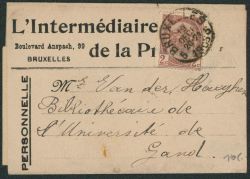 L'Intermédiaire
de la Pr
Boulevard Anspach, 99
BRUXELLES
PERSONNELLE
Mr Van der Haeghen
Bibliothécaire de
l'Université de
Gand.